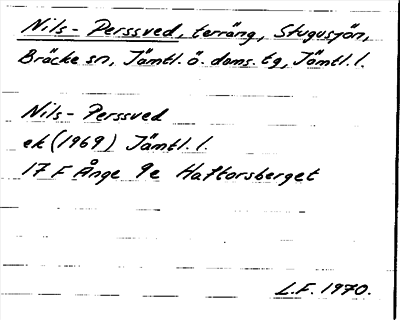 Nils-Perssved, terräng, Stugusjön,
Bräcke sn, Jämtl. ö. doms. tg, Jämtl. l.
Nils-Perssved
ek (1969) Jämtl. l.
17 F Ånge 9e Haftorsberget
L.F. 1970.